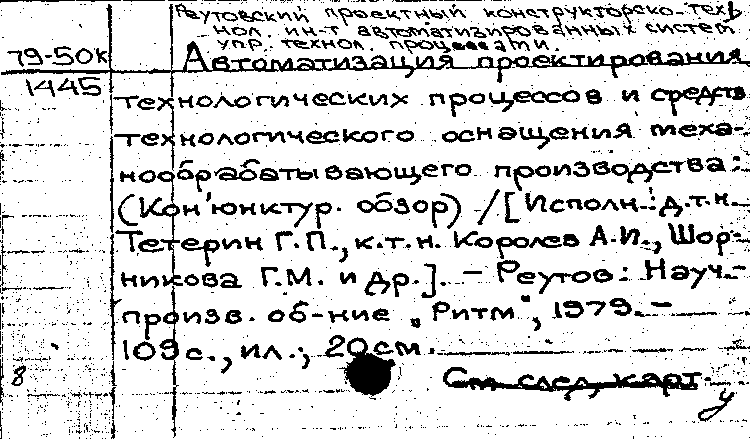 Реутовский проектный конструкторско-тех-
нол. ин-т автоматизированных систем
упр. технол. процессами.
79-50К
1445
Автоматизация проектирования
технологических процессов и средств
технологического оснащения меха-
нообрабатывающего производства:
(Кон'юнктур. обзор) / [Исполн.: д.т.н.
Тетерин Г.П., к.т.н. Королев А.И., Шор-
никова Г.М. и др.]. — Реутов: Науч.-
произв. об-ние „Ритм", 1979. —
109 с., ил.; 20 см.
8
См. след. карт.
у